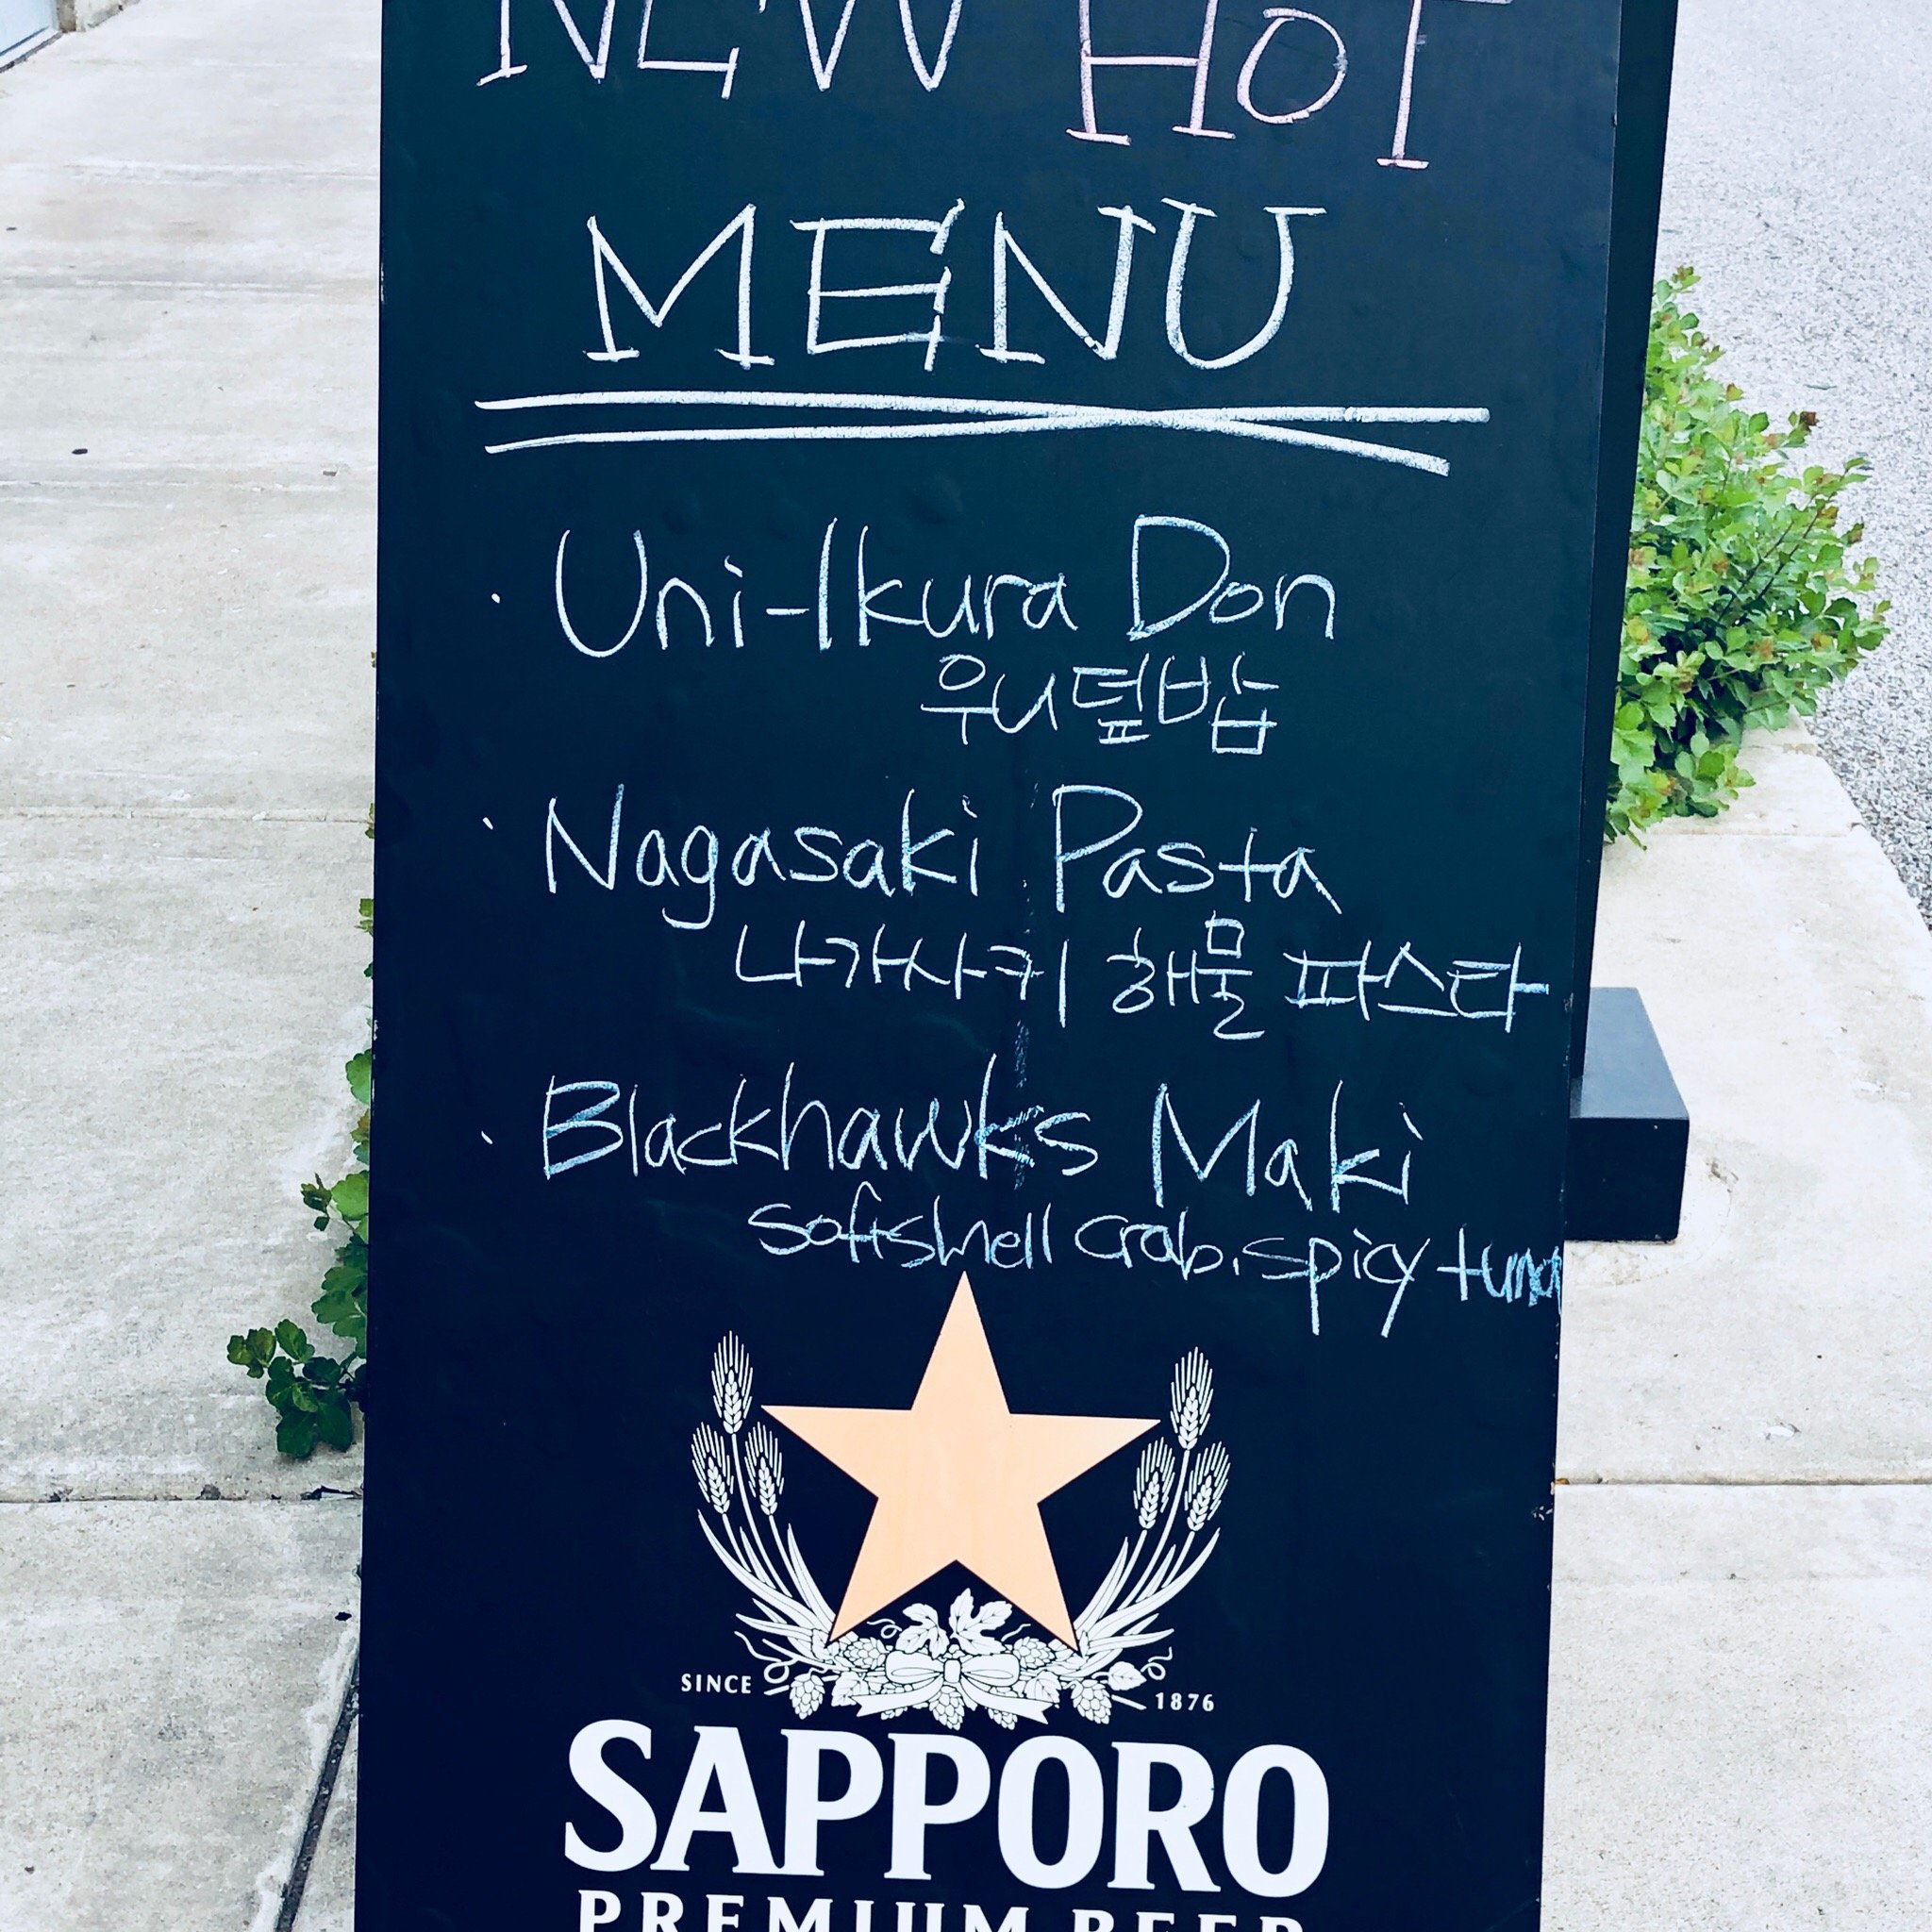 NEW HOT
MENU
· Uni-Ikura Don
우니덮밥
· Nagasaki Pasta
나가사키 해물 파스타
· Blackhawks Maki
softshell crab, spicy tuna
SINCE 1876
SAPPORO
PREMIUM BEER